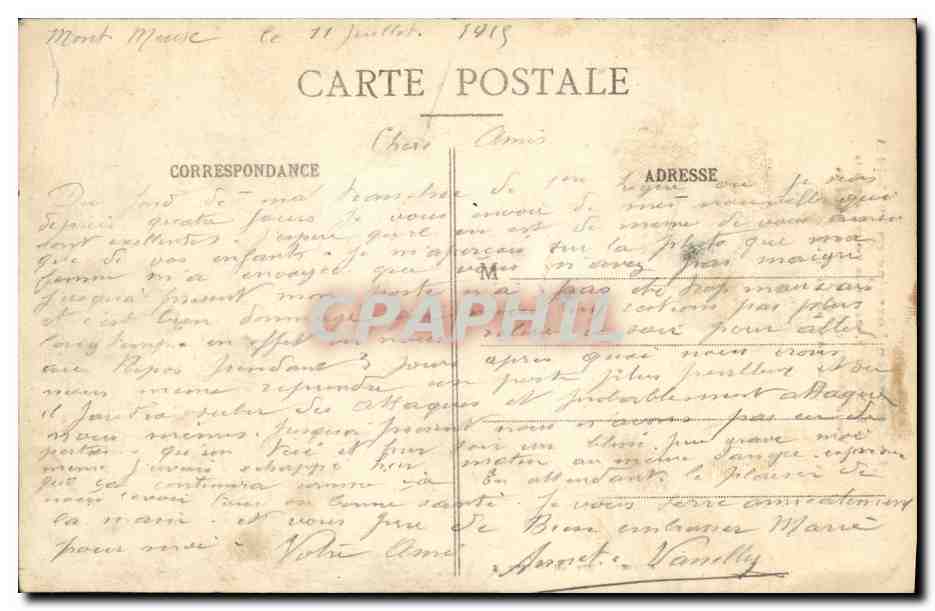 Mont Meuse le 11 Juillet. 1915
CARTE POSTALE
Chers Amis
CORRESPONDANCE ADRESSE
Du fond de ma tranchée de ligne ou je suis
depuis quatre jours je vous envoie de mes nouvelles qui
sont excellentes. j'espère qu'il en est de même de vous
que de vos enfants. Je m'aperçois sur la photo que ma
femme m'a envoyée que vous n'avez pas maigri
M
Jusqu'à présent mon poste n'a pas été trop mauvais
et c'est bien dommage que nous n'y restions pas plus
longtemps. en effet on nous relève ce soir pour aller
au Repos pendant 3 jours après quoi nous irons
nous même reprendre un poste plus périlleux et ou
il faudra subir des attaques et probablement attaquer
nous mêmes. Jusqu'à présent nous n'avons pas eu de
pertes. qu'un tué et hier soir un blessé peu grave moi
même j'avais échappé hier matin au même danger. espérons
que ça continuera comme ça En attendant le plaisir de
nous revoir tous en bonne santé. Je vous serre amicalement
la main. et vous prie de Bien embrasser
pour moi. Votre Ami
CPAPHIL